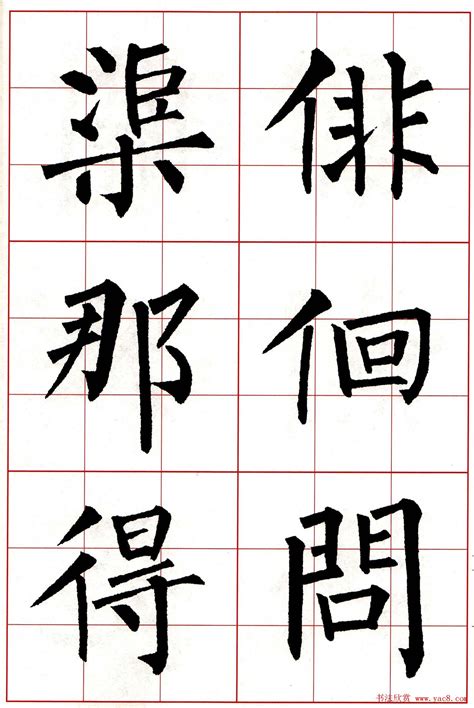 俳佪問
渠那得
书法欣赏 www.yac8.com